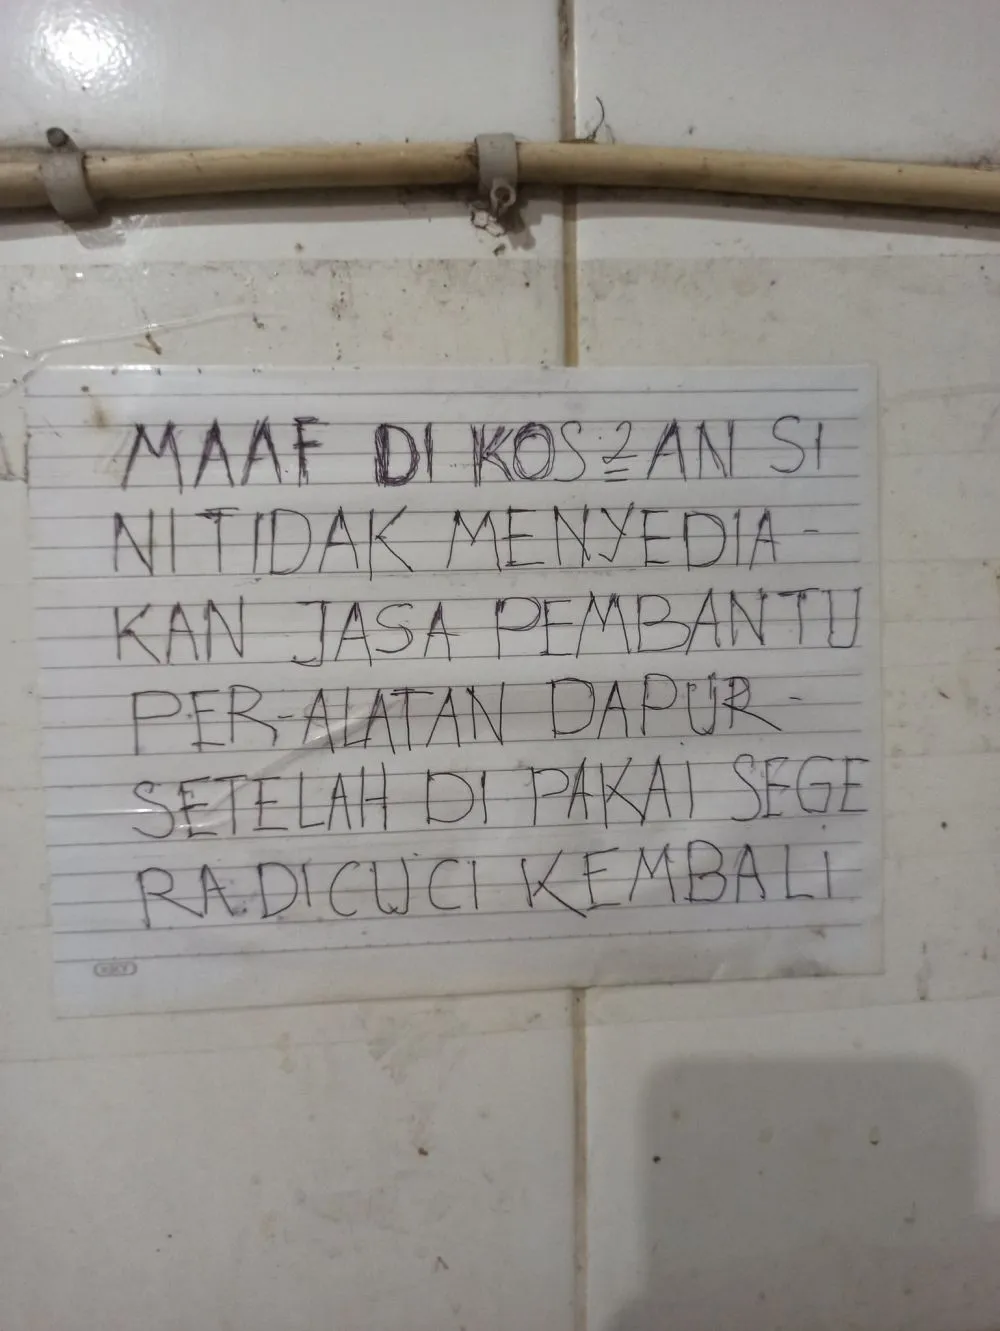 MAAF DI KOS2AN SI
NI TIDAK MENYEDIA-
KAN JASA PEMBANTU
PER-ALATAN DAPUR-
SETELAH DI PAKAI SEGE
RA DICUCI KEMBALI
KIKY